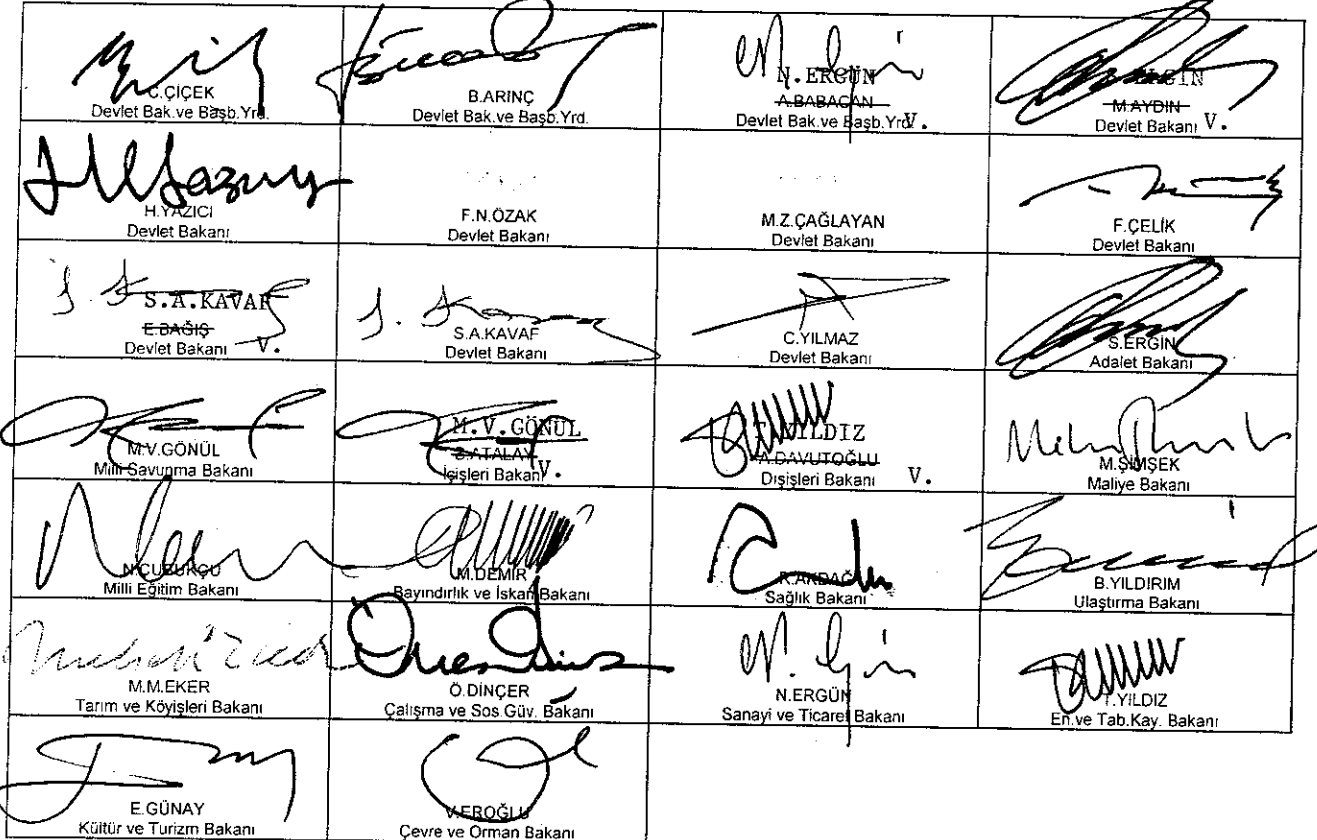 C.ÇİÇEK
Devlet Bak.ve Başb.Yrd.
B.ARINÇ
Devlet Bak.ve Başb.Yrd.
N.ERGÜN
A.BABACAN
Devlet Bak.ve Başb.Yrd V.
M.AYDIN
Devlet Bakanı V.
H.YAZICI
Devlet Bakanı
F.N.ÖZAK
Devlet Bakanı
M.Z.ÇAĞLAYAN
Devlet Bakanı
F.ÇELİK
Devlet Bakanı
S.A.KAVAF
E.BAĞIŞ
Devlet Bakanı V.
S.A.KAVAF
Devlet Bakanı
C.YILMAZ
Devlet Bakanı
S.ERGİN
Adalet Bakanı
M.V.GÖNÜL
Milli Savunma Bakanı
M.V.GÖNÜL
B.ATALAY
İçişleri Bakanı V.
YILDIZ
A.DAVUTOĞLU
Dışişleri Bakanı V.
M.ŞİMŞEK
Maliye Bakanı
N.ÇUBUKÇU
Milli Eğitim Bakanı
M.DEMİR
Bayındırlık ve İskan Bakanı
R.AKDAĞ
Sağlık Bakanı
B.YILDIRIM
Ulaştırma Bakanı
M.M.EKER
Tarım ve Köyişleri Bakanı
Ö.DİNÇER
Çalışma ve Sos.Güv. Bakanı
N.ERGÜN
Sanayi ve Ticaret Bakanı
T.YILDIZ
En.ve Tab.Kay. Bakanı
E.GÜNAY
Kültür ve Turizm Bakanı
V.EROĞLU
Çevre ve Orman Bakanı